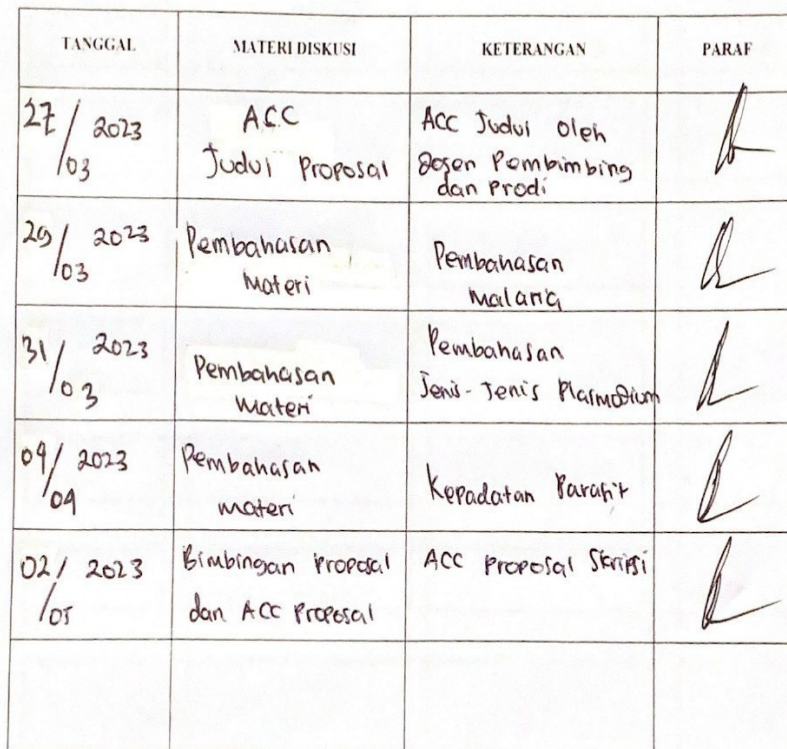 TANGGAL MATERI DISKUSI KETERANGAN PARAF
27/03 2023
ACC
Judul Proposal
ACC Judul oleh
Dosen Pembimbing
dan Prodi
29/03 2023
Pembahasan
Materi
Pembahasan
Malaria
31/03 2023
Pembahasan
Materi
Pembahasan
Jenis-Jenis Plasmodium
04/04 2023
Pembahasan
Materi
Kepadatan Parasit
02/05 2023
Bimbingan Proposal
dan ACC Proposal
ACC Proposal Skripsi